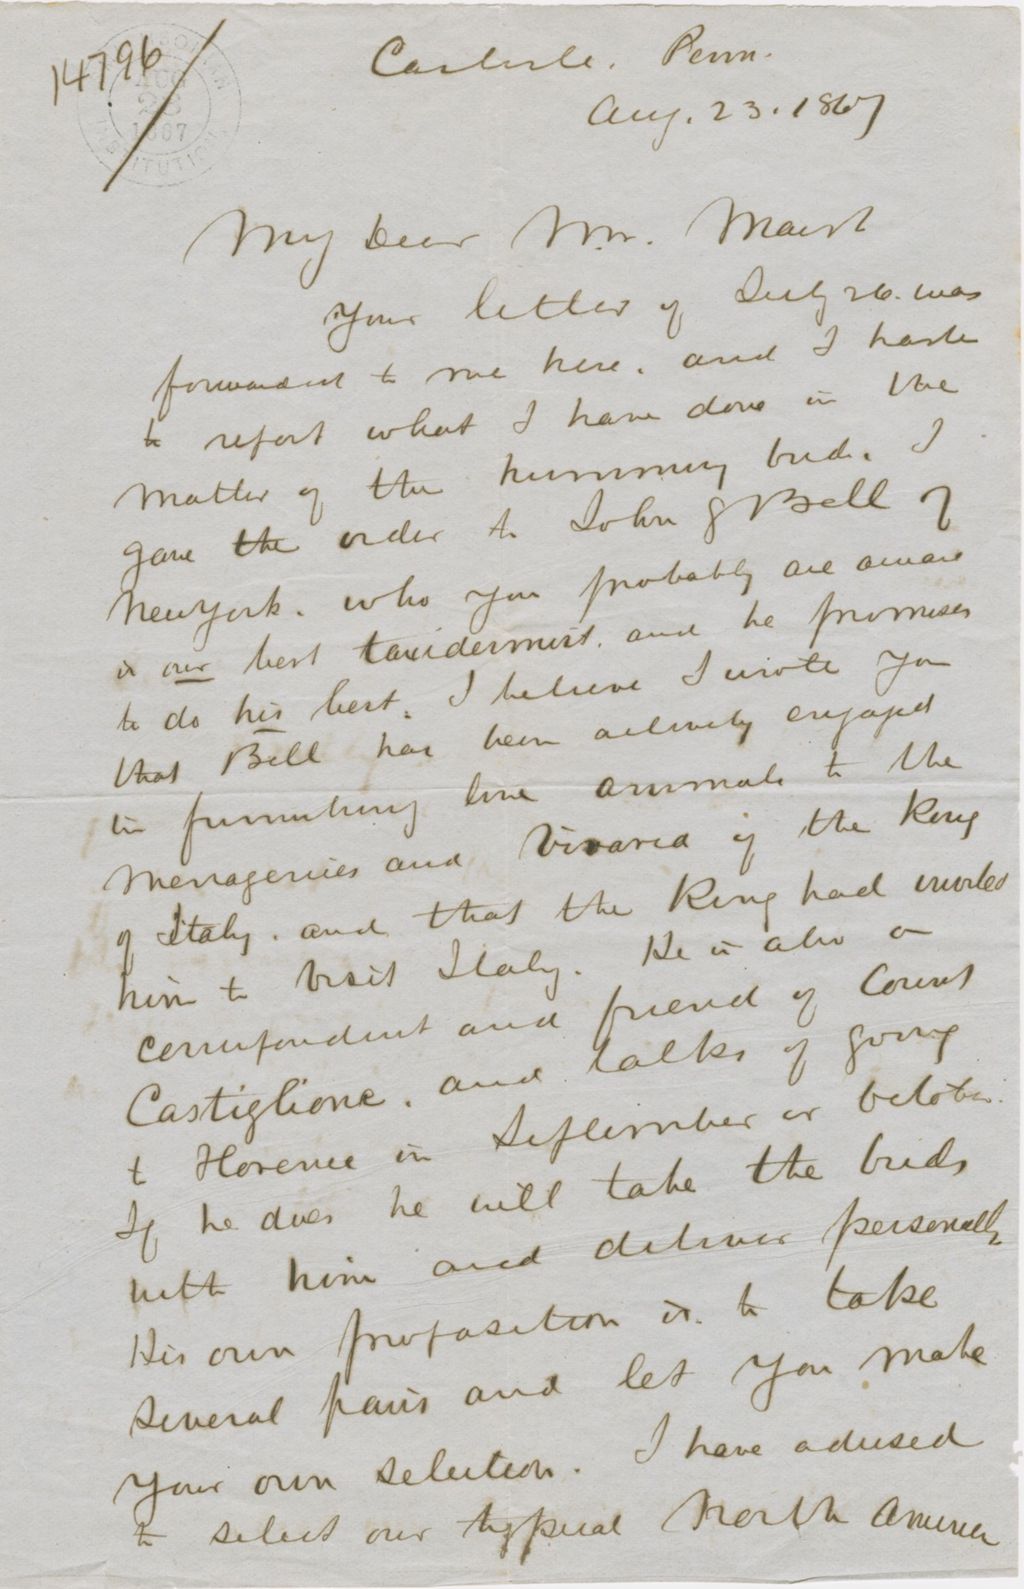 14796
SMITHSONIAN INSTITUTION
AUG
1867
Carlisle. Penn.
Aug. 23. 1867
My Dear Mr. Marsh
Your letter of July 26. was
forwarded to me here, and I haste
to report what I have done in the
matter of the humming bird. I
gave the order to John G Bell of
New York. who you probably are aware
is our best taxidermist. and he promises
to do his best. I believe I wrote you
that Bell has been actively engaged
in furnishing live animals to the
menageries and Vivaria of the King
of Italy. and that the King had invited
him to visit Italy. He is also a
correspondent and friend of Count
Castiglione. and talks of going
to Florence in September or October.
If he does he will take the birds
with him and deliver personally
His own proposition is. to take
several pairs and let you make
your own selection. I have advised
to select our typical North America